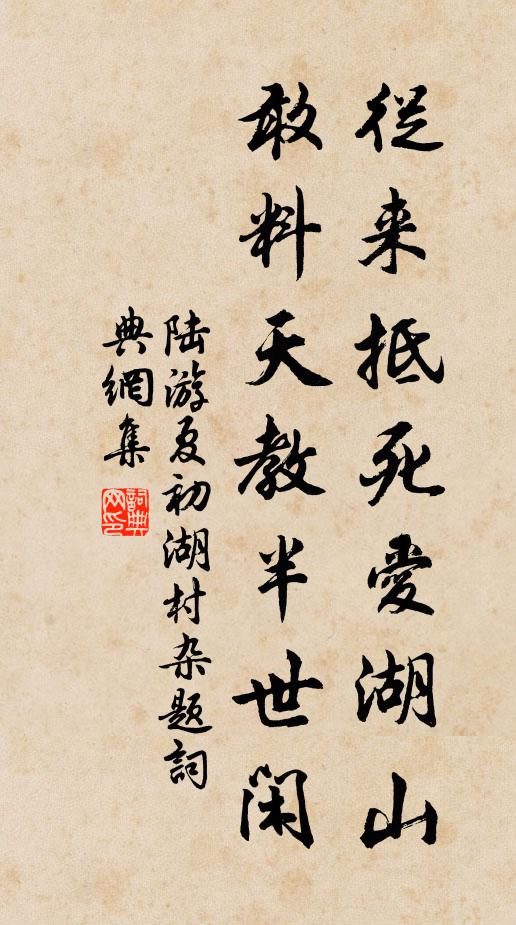 從来抵死愛湖山
敢料天教半世閑
陆游夏初湖村杂題詞
典網集
詞典网印